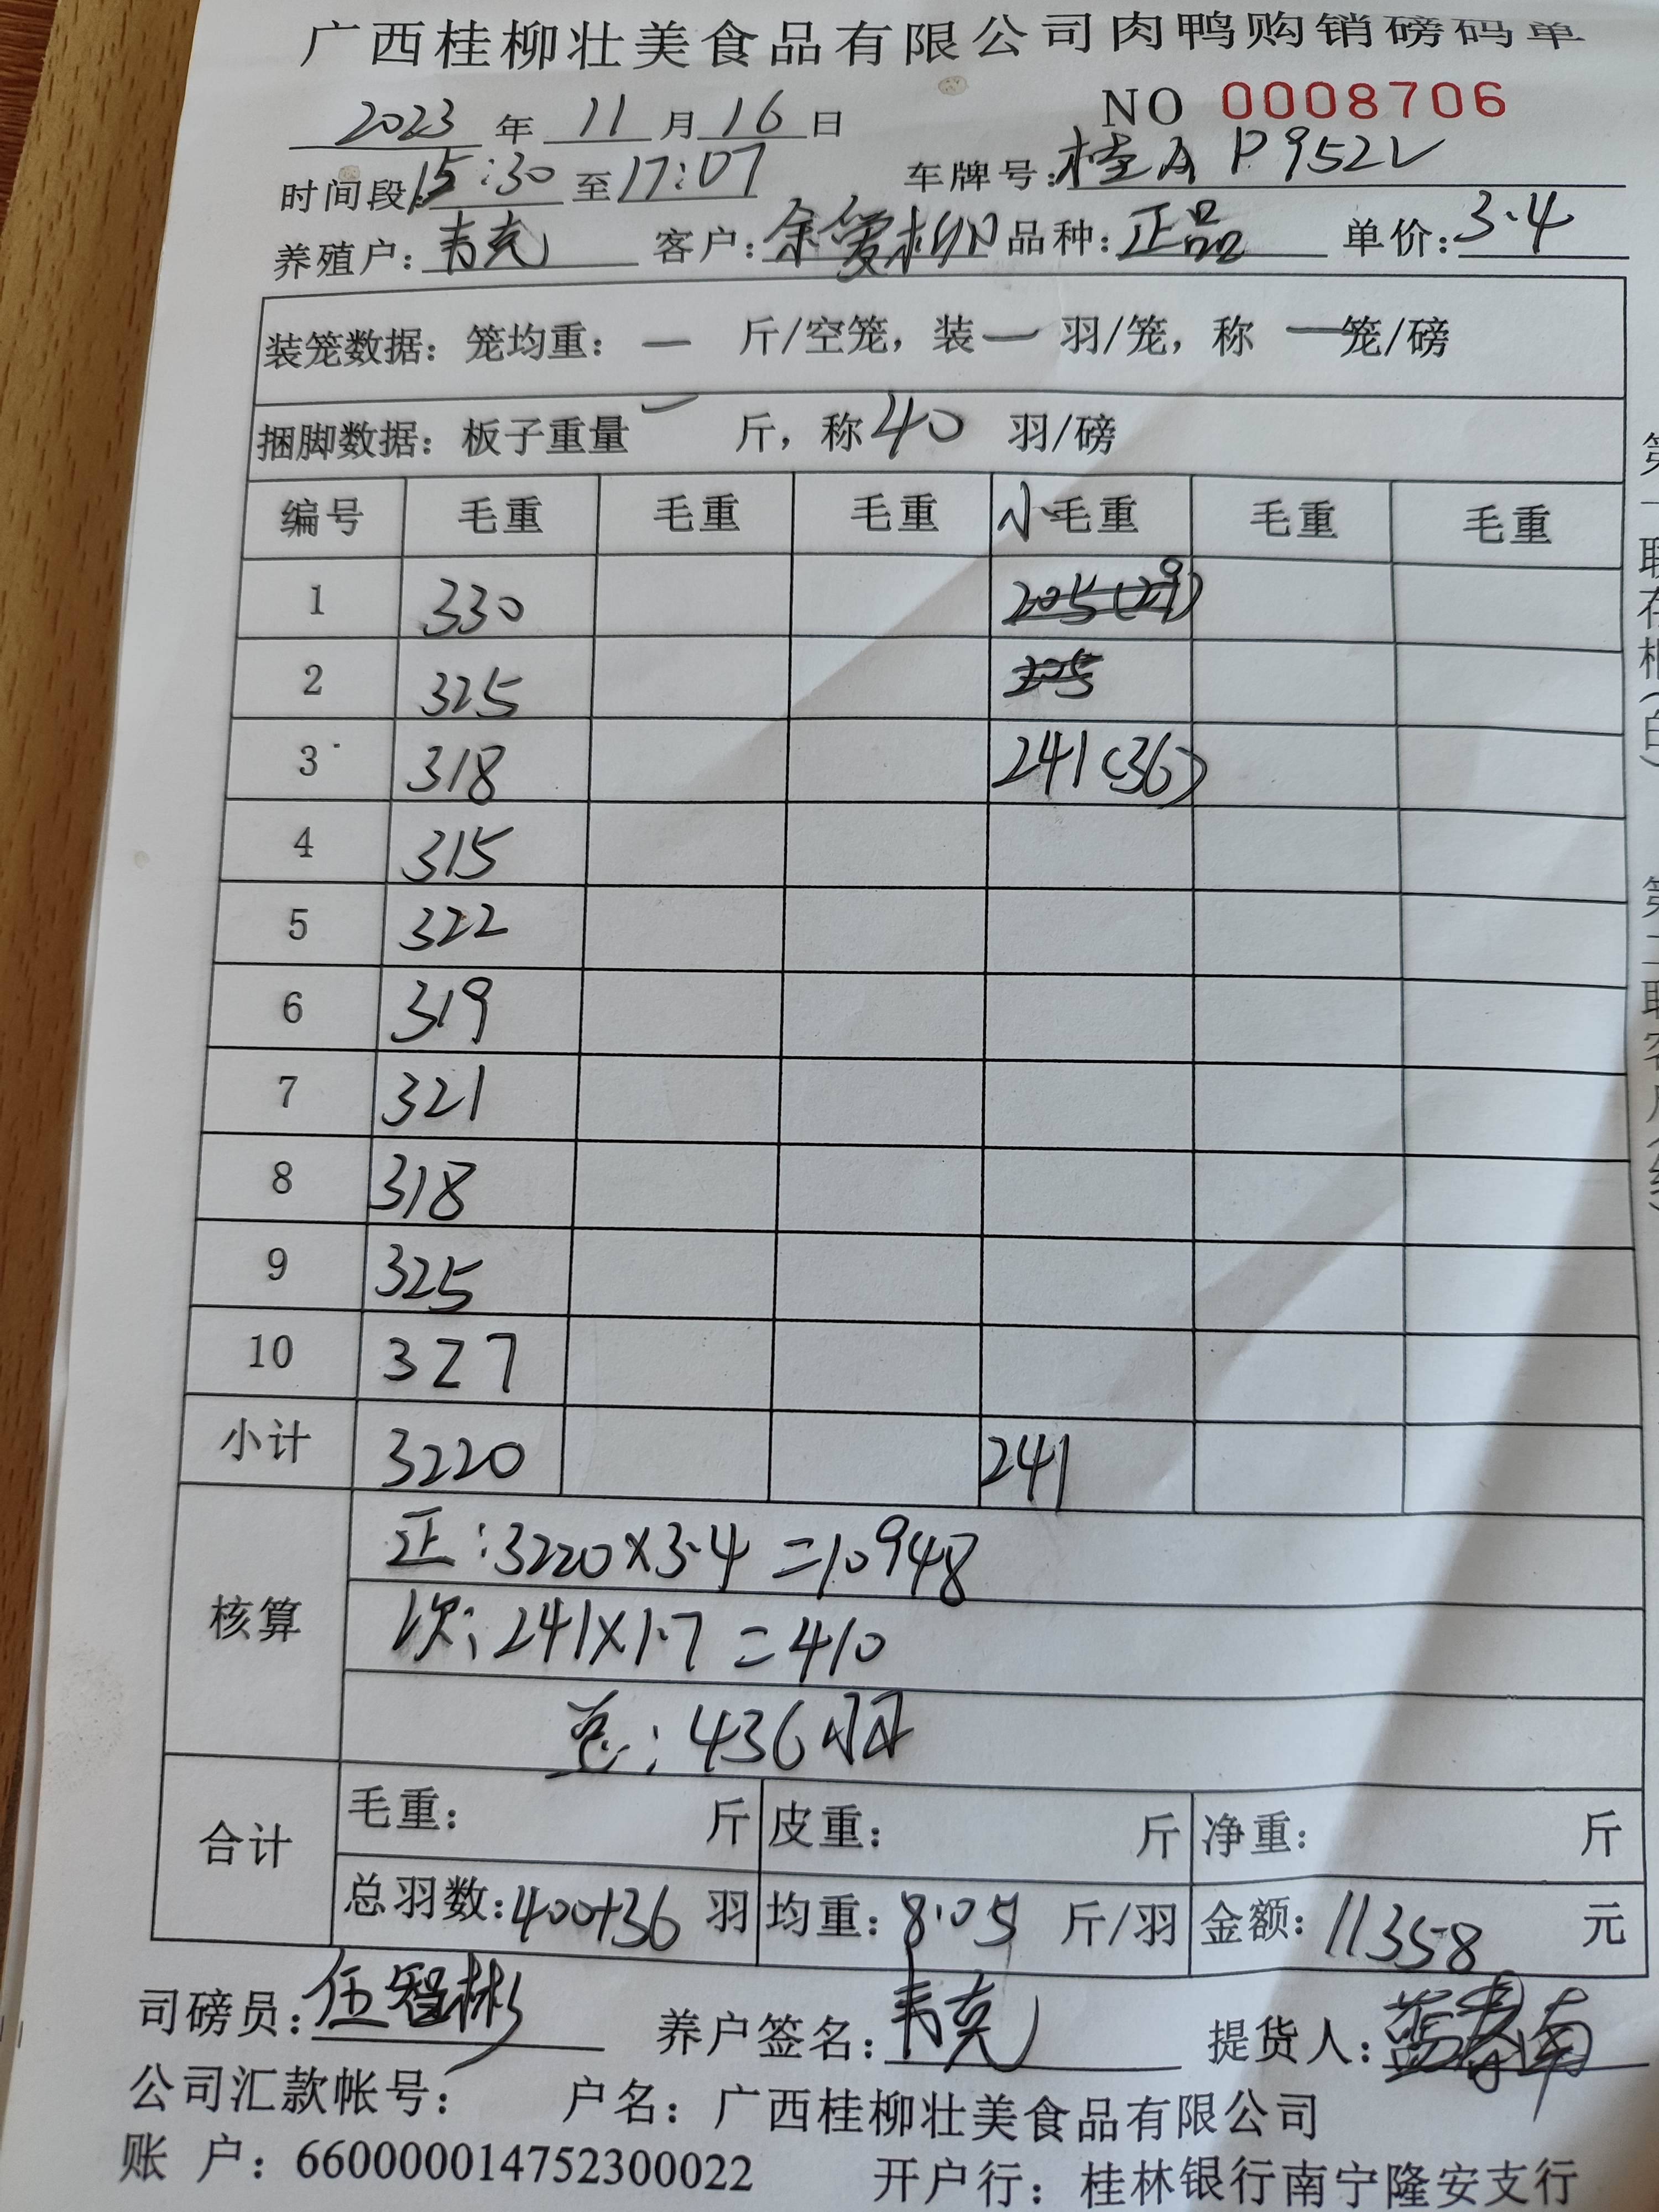 广西桂柳壮美食品有限公司肉鸭购销磅码单
NO 0008706
2023 年 11 月 16 日
时间段:15:30 至 17:07 车牌号:桂A P952V
养殖户:韦克 客户:余爱柳 品种:正品 单价:3.4
装笼数据:笼均重:一 斤/空笼,装一 羽/笼,称 一笼/磅
捆脚数据:板子重量 一 斤,称40 羽/磅
编号 毛重 毛重 毛重 小毛重 毛重 毛重
1 330 205(29)
2 325 205
3 318 241(36)
4 315
5 322
6 319
7 321
8 318
9 325
10 327
小计 3220 241
核算
正:3220×3.4=10948
次:241×1.7=410
总:436羽
合计
毛重: 斤 皮重: 斤 净重: 斤
总羽数:400+36 羽 均重:8.05 斤/羽 金额:11358 元
司磅员:伍智彬 养户签名:韦克 提货人:蓝春南
公司汇款帐号: 户名:广西桂柳壮美食品有限公司
账 户:660000014752300022 开户行:桂林银行南宁隆安支行